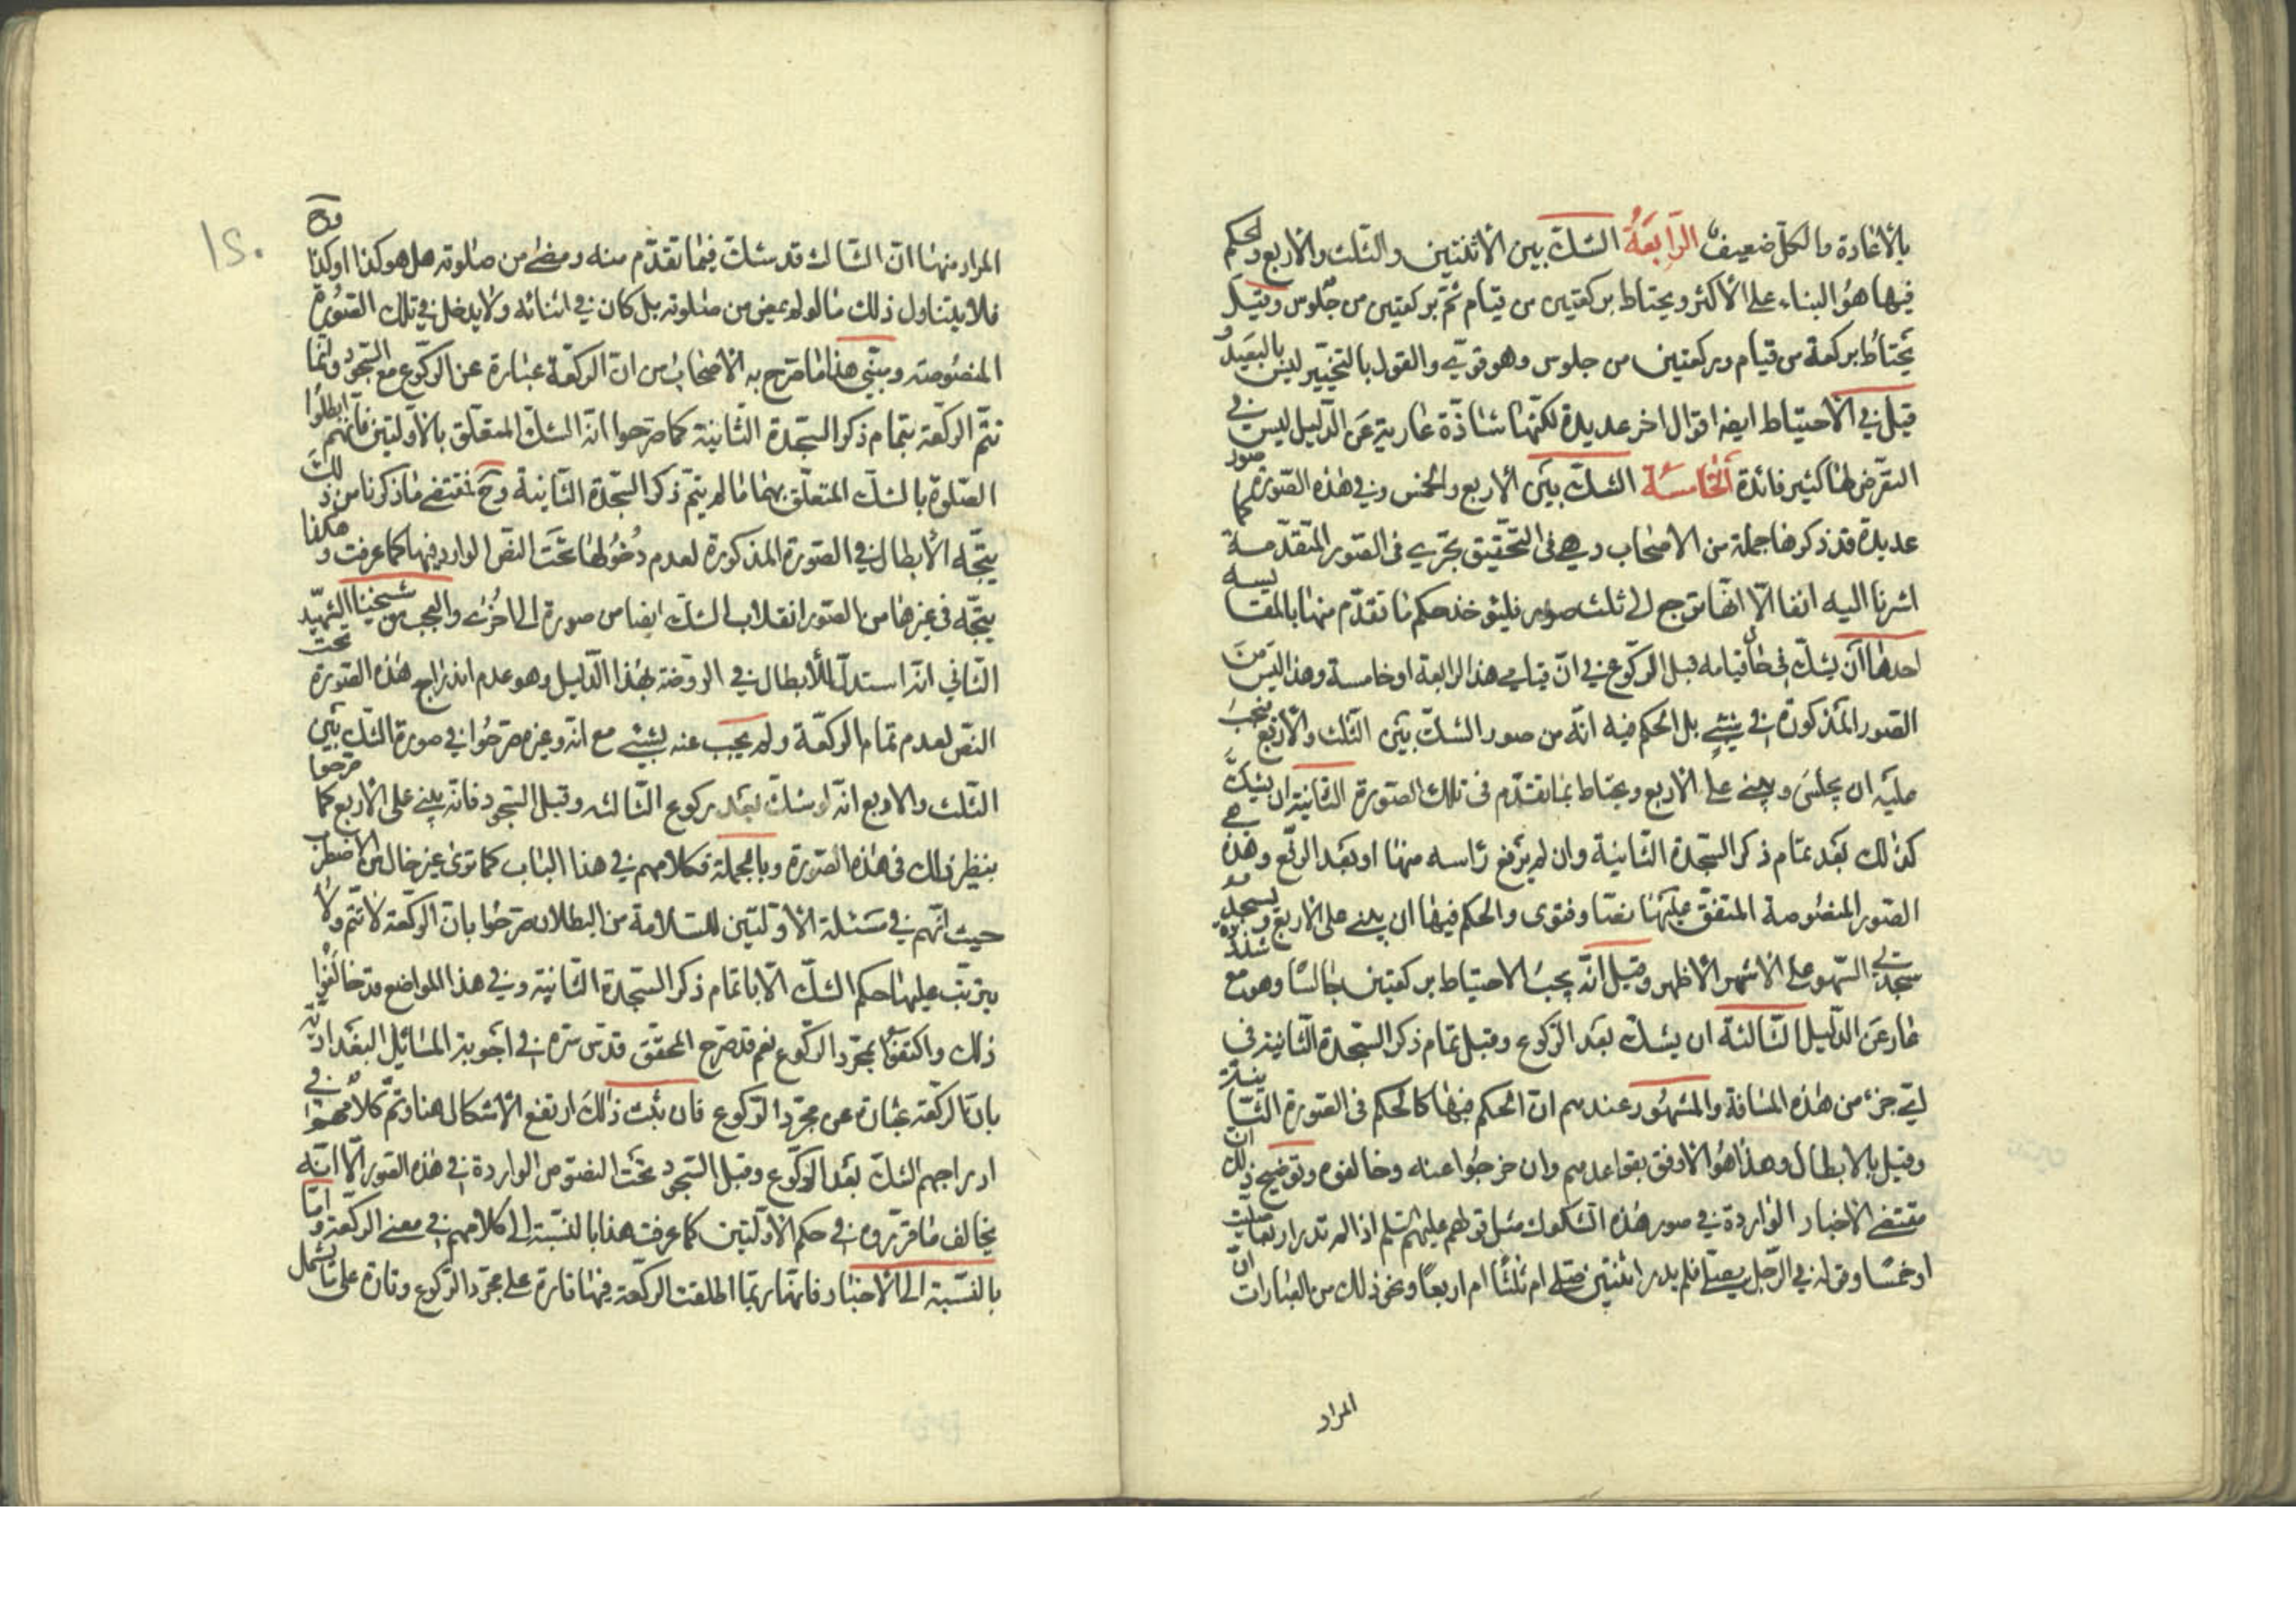 بالاعادة والكل ضعيف الرابعة الشك بين الاثنتين والثلث والاربع والحكم
فيها هو البناء على الاكثر ويحتاط بركعتين من قيام ثم بركعتين من جلوس وقيل
يحتاط بركعة من قيام وبركعتين من جلوس وهو قوي والقول بالتخيير ليس بالبعيد و
قيل في الاحتياط ايضا اقوال اخر عديدة لكنها شاذة عارية عن الدليل ليس في
التعرض لها كثير فائدة الخامسة الشك بين الاربع والخمس وفي هذه الصورة صور
عديدة قد ذكرها جملة من الاصحاب وهي في التحقيق تجري في الصور المتقدمة كما
اشرنا اليه انفا الا انها ترجع الى ثلث صور فليؤخذ حكم ما تقدم منها بالمقايسه
احدها ان يشك في حال قيامه قبل الركوع في ان قيامي هذا لرابعة او خامسة وهذا ليس من
الصور المذكورة في شيء بل الحكم فيه انه من صور الشك بين الثلث والاربع فيجب
عليه ان يجلس ويبني على الاربع ويحتاط بما تقدم في تلك الصورة الثانية ان يشك
كذلك بعد تمام ذكر السجدة الثانية وان لم يرفع راسه منها او بعد الرفع وهذه هي
الصور المنصوصة المتفق عليها نصا وفتوى والحكم فيها ان يبني على الاربع ويسجد
سجدتي السهو على الاشهر الاظهر وقيل انه يجب الاحتياط بركعتين جالسا وهو مع شذوذه
عار عن الدليل الثالثة ان يشك بعد الركوع وقبل تمام ذكر السجدة الثانية في
اي جزء من هذه المسافة والمشهور عندهم ان الحكم فيها كالحكم في الصورة الثانية
وقيل بالابطال وهذا هو الاوفق بقواعدهم وان خرجوا عنه وخالفوه وتوضيح ذلك ان
مقتضى الاخبار الواردة في صور هذه الشكوك مثل قولهم عليهم السلم اذا لم تدر اربعا صليت
او خمسا وقوله في الرجل يصلي فلم يدر اثنتين صلى ام ثلثا ام اربعا ونحو ذلك من العبارات ان
المراد
١٥٠
المراد منها ان الشاك قد شك فيما تقدم منه ومضى من صلوته هل هو كذا او كذا
فلا يتناول ذلك ما لو لم يمض من صلوته بل كان في اثنائه ولا يدخل في تلك الصورة
المنصوصة ويبتني هذا ما صرح به الاصحاب من ان الركعة عبارة عن الركوع مع السجود وانما
تتم الركعة بتمام ذكر السجدة الثانية كما صرحوا انه الشك المتعلق بالاولتين فانهم ابطلوا
الصلوة بالشك المتعلق بهما ما لم يتم ذكر السجدة الثانية وح فمقتضى ما ذكرنا من ذلك
يتجه الابطال في الصورة المذكورة لعدم دخولها تحت النص الوارد فيها كما عرفت و هكذا
يتجه في غيرها من الصور انقلاب الشك ايضا من صورة الى اخرى والعجب من شيخنا الشهيد
الثاني انه استدل للابطال في الروضة بهذا الدليل وهو عدم اندراج هذه الصورة تحت
النص لعدم تمام الركعة ولم يجب عنه بشيء مع انه وغيره صرحوا في صورة الشك بين
الثلث والاربع انه لو شك بعد ركوع الثالثه وقبل السجود فانه يبني على الاربع كما صرحوا
بنظير ذلك في هذه الصورة وبالجملة فكلامهم في هذا الباب كما ترى غير خال من الاضطراب
حيث انهم في مسئلة الاولتين للسلامة من البطلان صرحوا بان الركعة لا تتم ولا
يترتب عليها حكم الشك الا باتمام ذكر السجدة الثانية وفي هذا المواضع قد خالفوا
ذلك واكتفوا بمجرد الركوع نعم قد صرح المحقق قدس سره في اجوبة المسائل البغدادية
بان الركعة عبارة عن مجرد الركوع فان ثبت ذلك ارتفع الاشكال هنا وتم كلامهم في
ادراجهم الشك بعد الركوع وقبل السجود تحت النصوص الواردة في هذه الصور الا انه
يخالف ما قرروه في حكم الاولتين كما عرفت هذا بالنسبة الى كلامهم في معنى الركعة واما
بالنسبة الى الاخبار فانها ربما اطلقت الركعة فيها تارة على مجرد الركوع وتارة على ما يشمل